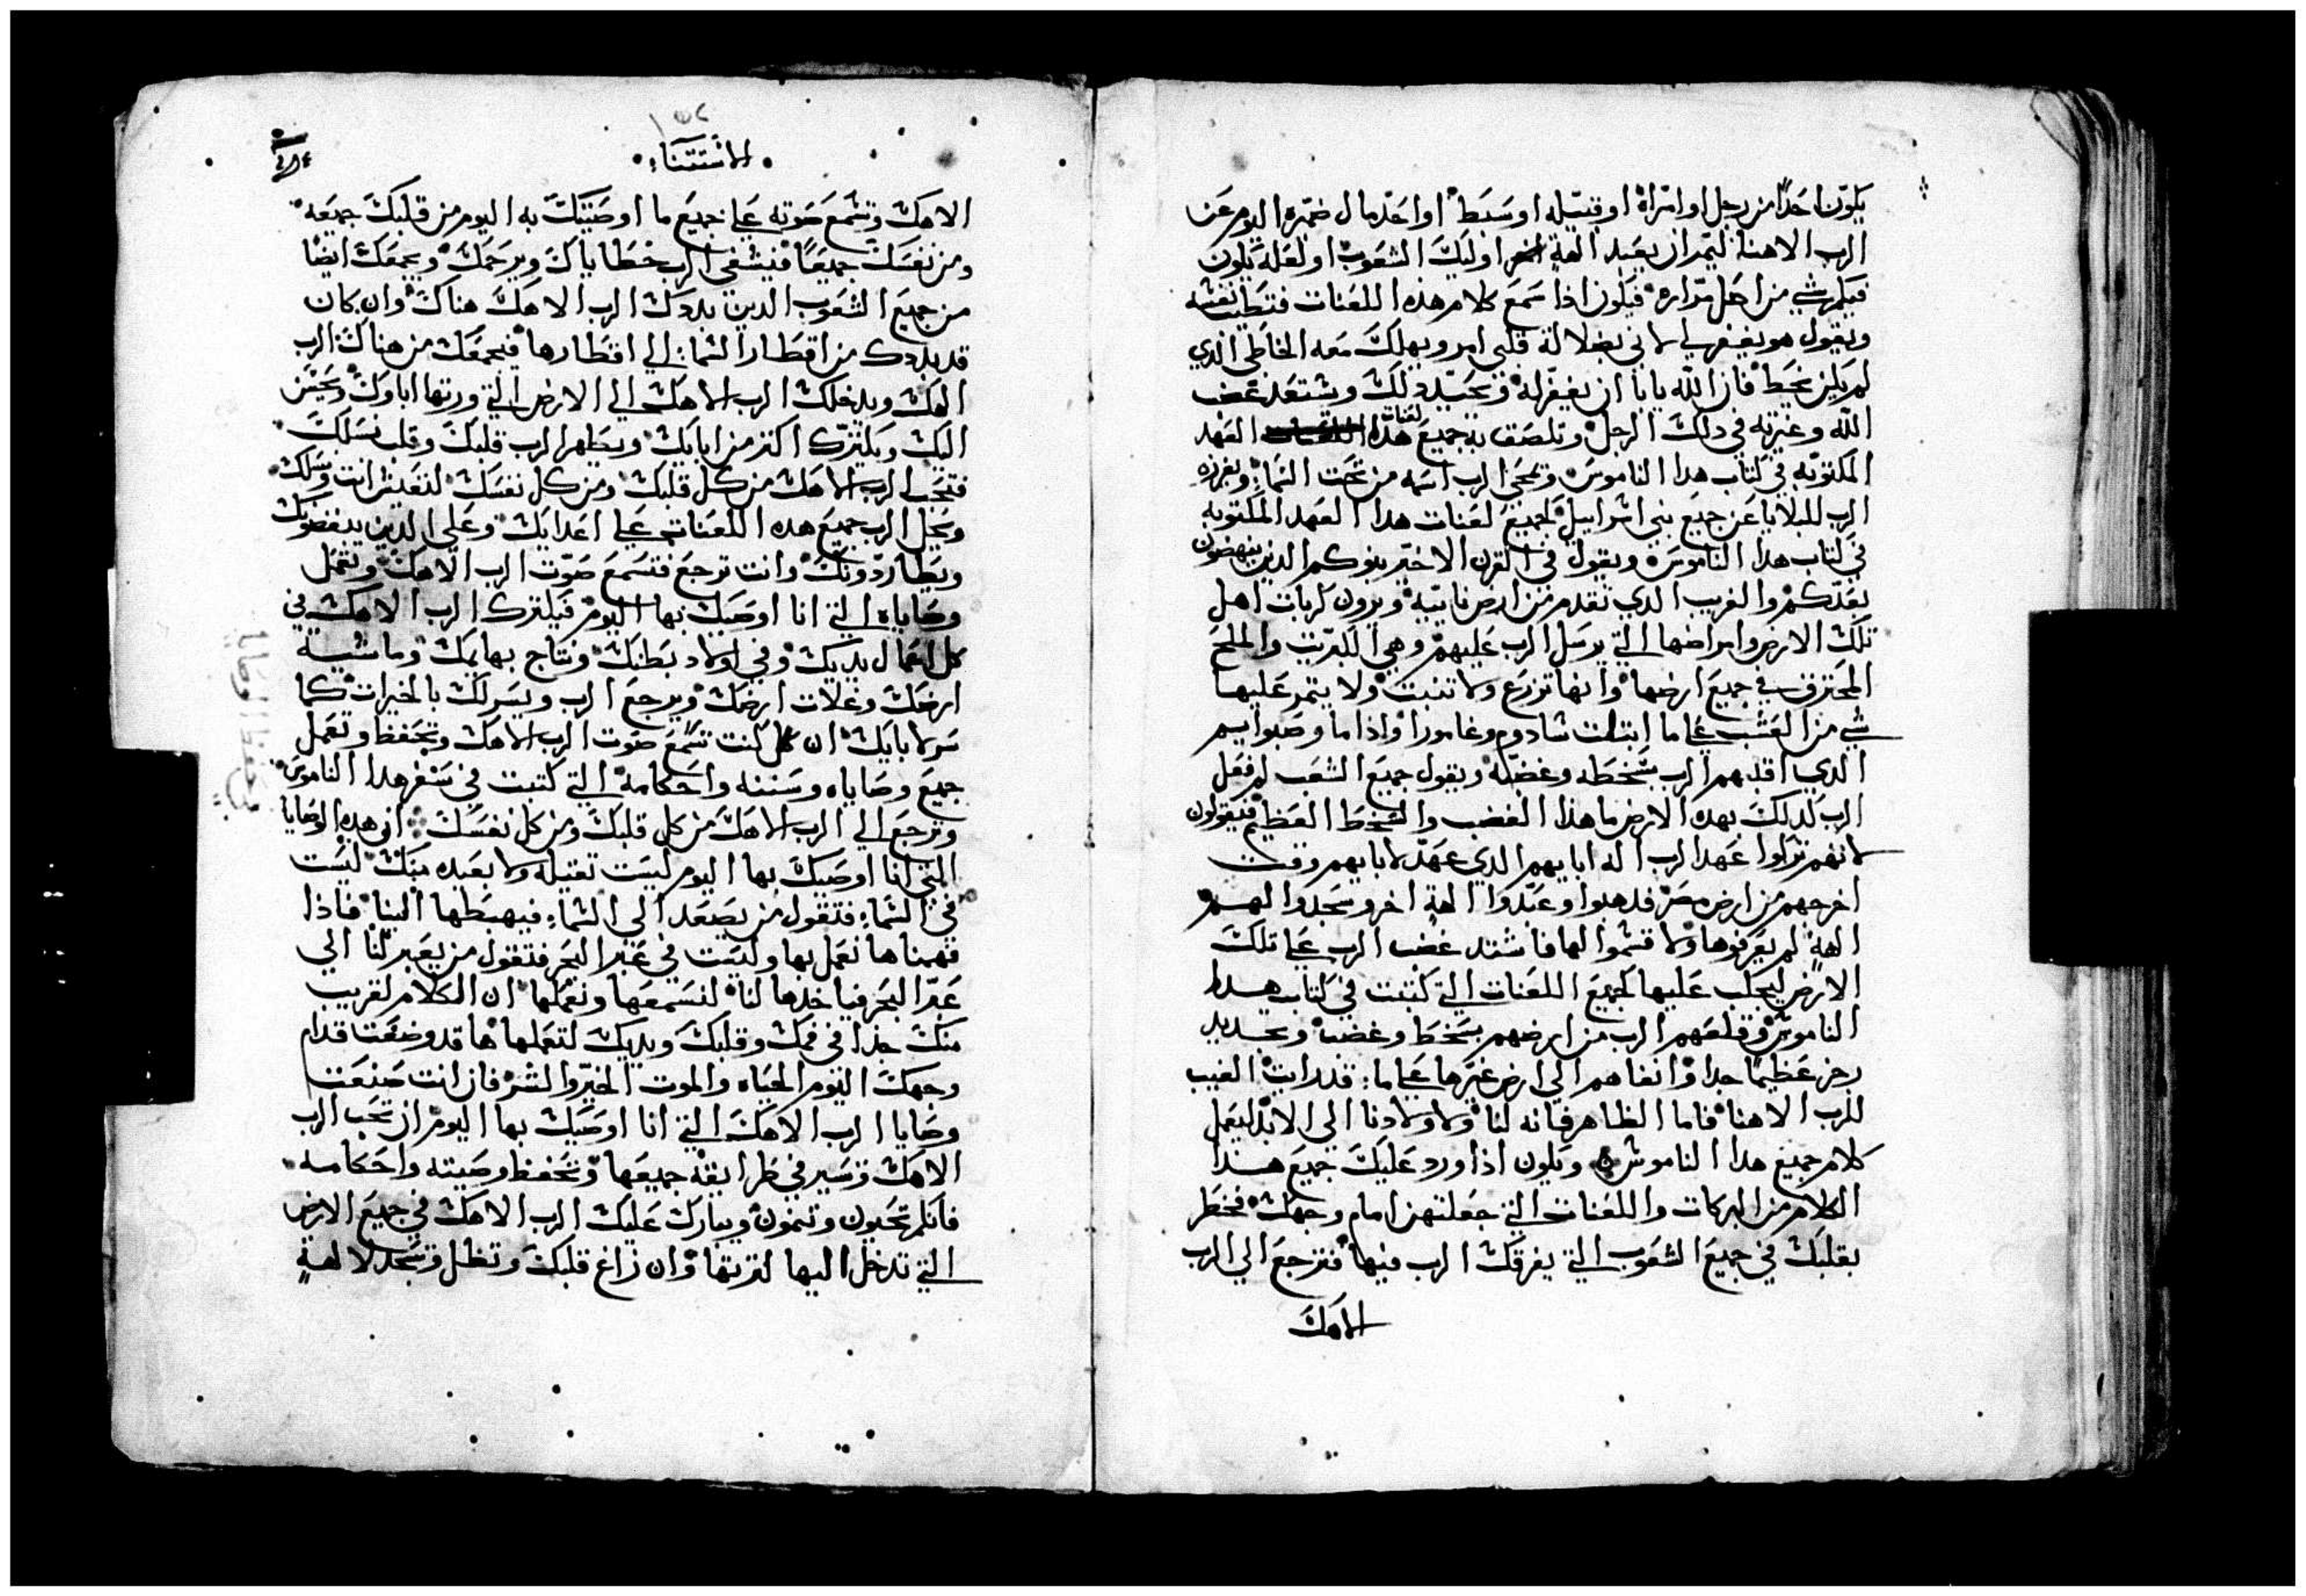 يكون احدًا من رجل او امراة او قبيله او سبط او احد مال ضميره اليوم عن
الرب الاهنا ليمر ان يعبد الهة اخر اوليك الشعوب او لعله يكون
فيكم شي من اصل مراره فيكون اذا سمع كلام هذه اللعنات فتطيب نفسه
ويقول هو يغفر لي لاني بضلالة قلبي امر ويهلك معه الخاطي الذي
لم يكن يخط فان الله يابا ان يغفر له وحينيد دلك ويشتعد غضب
الله وغيرته في دلك الرجل وتلصق به جميع لعنات هذا العهد
المكتوبه في كتاب هدا الناموس ويمحي الرب اسمه من تحت السما ويفرزه
الرب للبلايا عن جميع بني اسراييل لجميع لعنات هدا العهد المكتوبه
في كتاب هدا الناموس ويقول في القرن الاخير بنوكم الذين ينهضون
بعدكم والغريب الدي تقدم من ارض نايية ويرون ضربات اهل
تلك الارض وامراضها التي يرسل الرب عليهم وهي الكبريت والملح
المحترق في جميع ارضها وانها تزرع ولا تنبت ولا يتمر عليها
شي من العشب علي ما ابتلت شادوم وغامورا واذاما وصبوايم
الدي اقلبهم الرب بسخطه وغضبه ويقول جميع الشعب لم فعل
الرب كدلك بهده الارض ما هذا الغضب والسخط العظيم فيقولون
لانهم تركوا عهد الرب اله ابايهم الدي عهد لابايهم وقت
اخرجهم من ارض مصر فدهبوا وعبدوا الهة اخر وسجدوا لهم
الهة لم يعرفوها ولا قسموا لها فاشتد غضب الرب علي تلك
الارض ليجلب عليها لجميع اللعنات التي كتبت في كتاب هدا
الناموس وقلعهم الرب من ارضهم بسخط وغضب وبحديد
رجز عظيمًا جدا وانفاهم الي ارض غيرها علي ما قد رايت الغيب
للرب الاهنا فاما الظاهر فانه لنا ولاولادنا الي الابد ليعمل
كلام جميع هدا الناموس ويكون اذا ورد عليك جميع هدا
الكلام من البركات واللعنات التي جعلتهن امام وجهك فخطر
بقلبك في جميع الشعوب التي يفرقك الرب فيها فترجع الي الرب
الاهك
١٥٢
الاستتناء
الاهك وتسمع صوته علي جميع ما اوصيتك به اليوم من قلبك جميعه
ومن نفسك جميعًا فيشفي الرب خطاياك ويرحمك ويجمعك ايضا
من جميع الشعوب الدين بددك الرب الاهك هناك وان كان
قد بددك من اقطار السما الي اقطارها فيجمعك من هناك الرب
الهك ويدخلك الرب الاهك الي الارض التي ورتها اباوك ويحسن
اليك ويكترك اكتر من ابايك ويطهر الرب قلبك وقلب نسلك
فتحب الرب الاهك من كل قلبك ومن كل نفسك لتعيش انت ونسلك
ويجل الرب جميع هده اللعنات علي اعدايك وعلي الدين يبغضونك
ويطاردونك وانت ترجع فتسمع صوت الرب الاهك وتعمل
وصاياه التي انا اوصيك بها اليوم فيكترك الرب الاهك في
كل اعمال يديك وفي اولاد بطنك ونتاج بهايمك وماشية
ارضك وغلات ارضك ويرجع الرب ويسر لك بالخيرات كما
سر لابايك ان كنت تسمع صوت الرب الاهك وتحفظ وتعمل
جميع وصاياه وسننه واحكامه التي كتبت في سفر هدا الناموس
وترجع الي الرب الاهك من كل قلبك ومن كل نفسك ان هده الوصايا
التي انا اوصيك بها اليوم ليست تقيله ولا بعيده منك ليست
في السما فتقول من يصعد الي السما فيهبطها الينا فاذا
فهمناها نعمل بها وليست في عبر البحر فتقول من يعبر لنا الي
عبر البحر فياخدها لنا لنسمعها ونعملها ان الكلام لقريب
منك جدا في فمك وقلبك ويديك لتعملها ها قد وضعت قدام
وجهك اليوم الحياه والموت الخير والشر فان انت صنعت
وصايا الرب الاهك التي انا اوصيك بها اليوم ان تحب الرب
الاهك وتسير في طرايقه جميعها وتحفظ وصيته واحكامه
فانكم تحيون وتنمون ويبارك عليك الرب الاهك في جميع الارض
التي تدخل اليها لترتها وان زاغ قلبك وتظل وتسجد لالهة